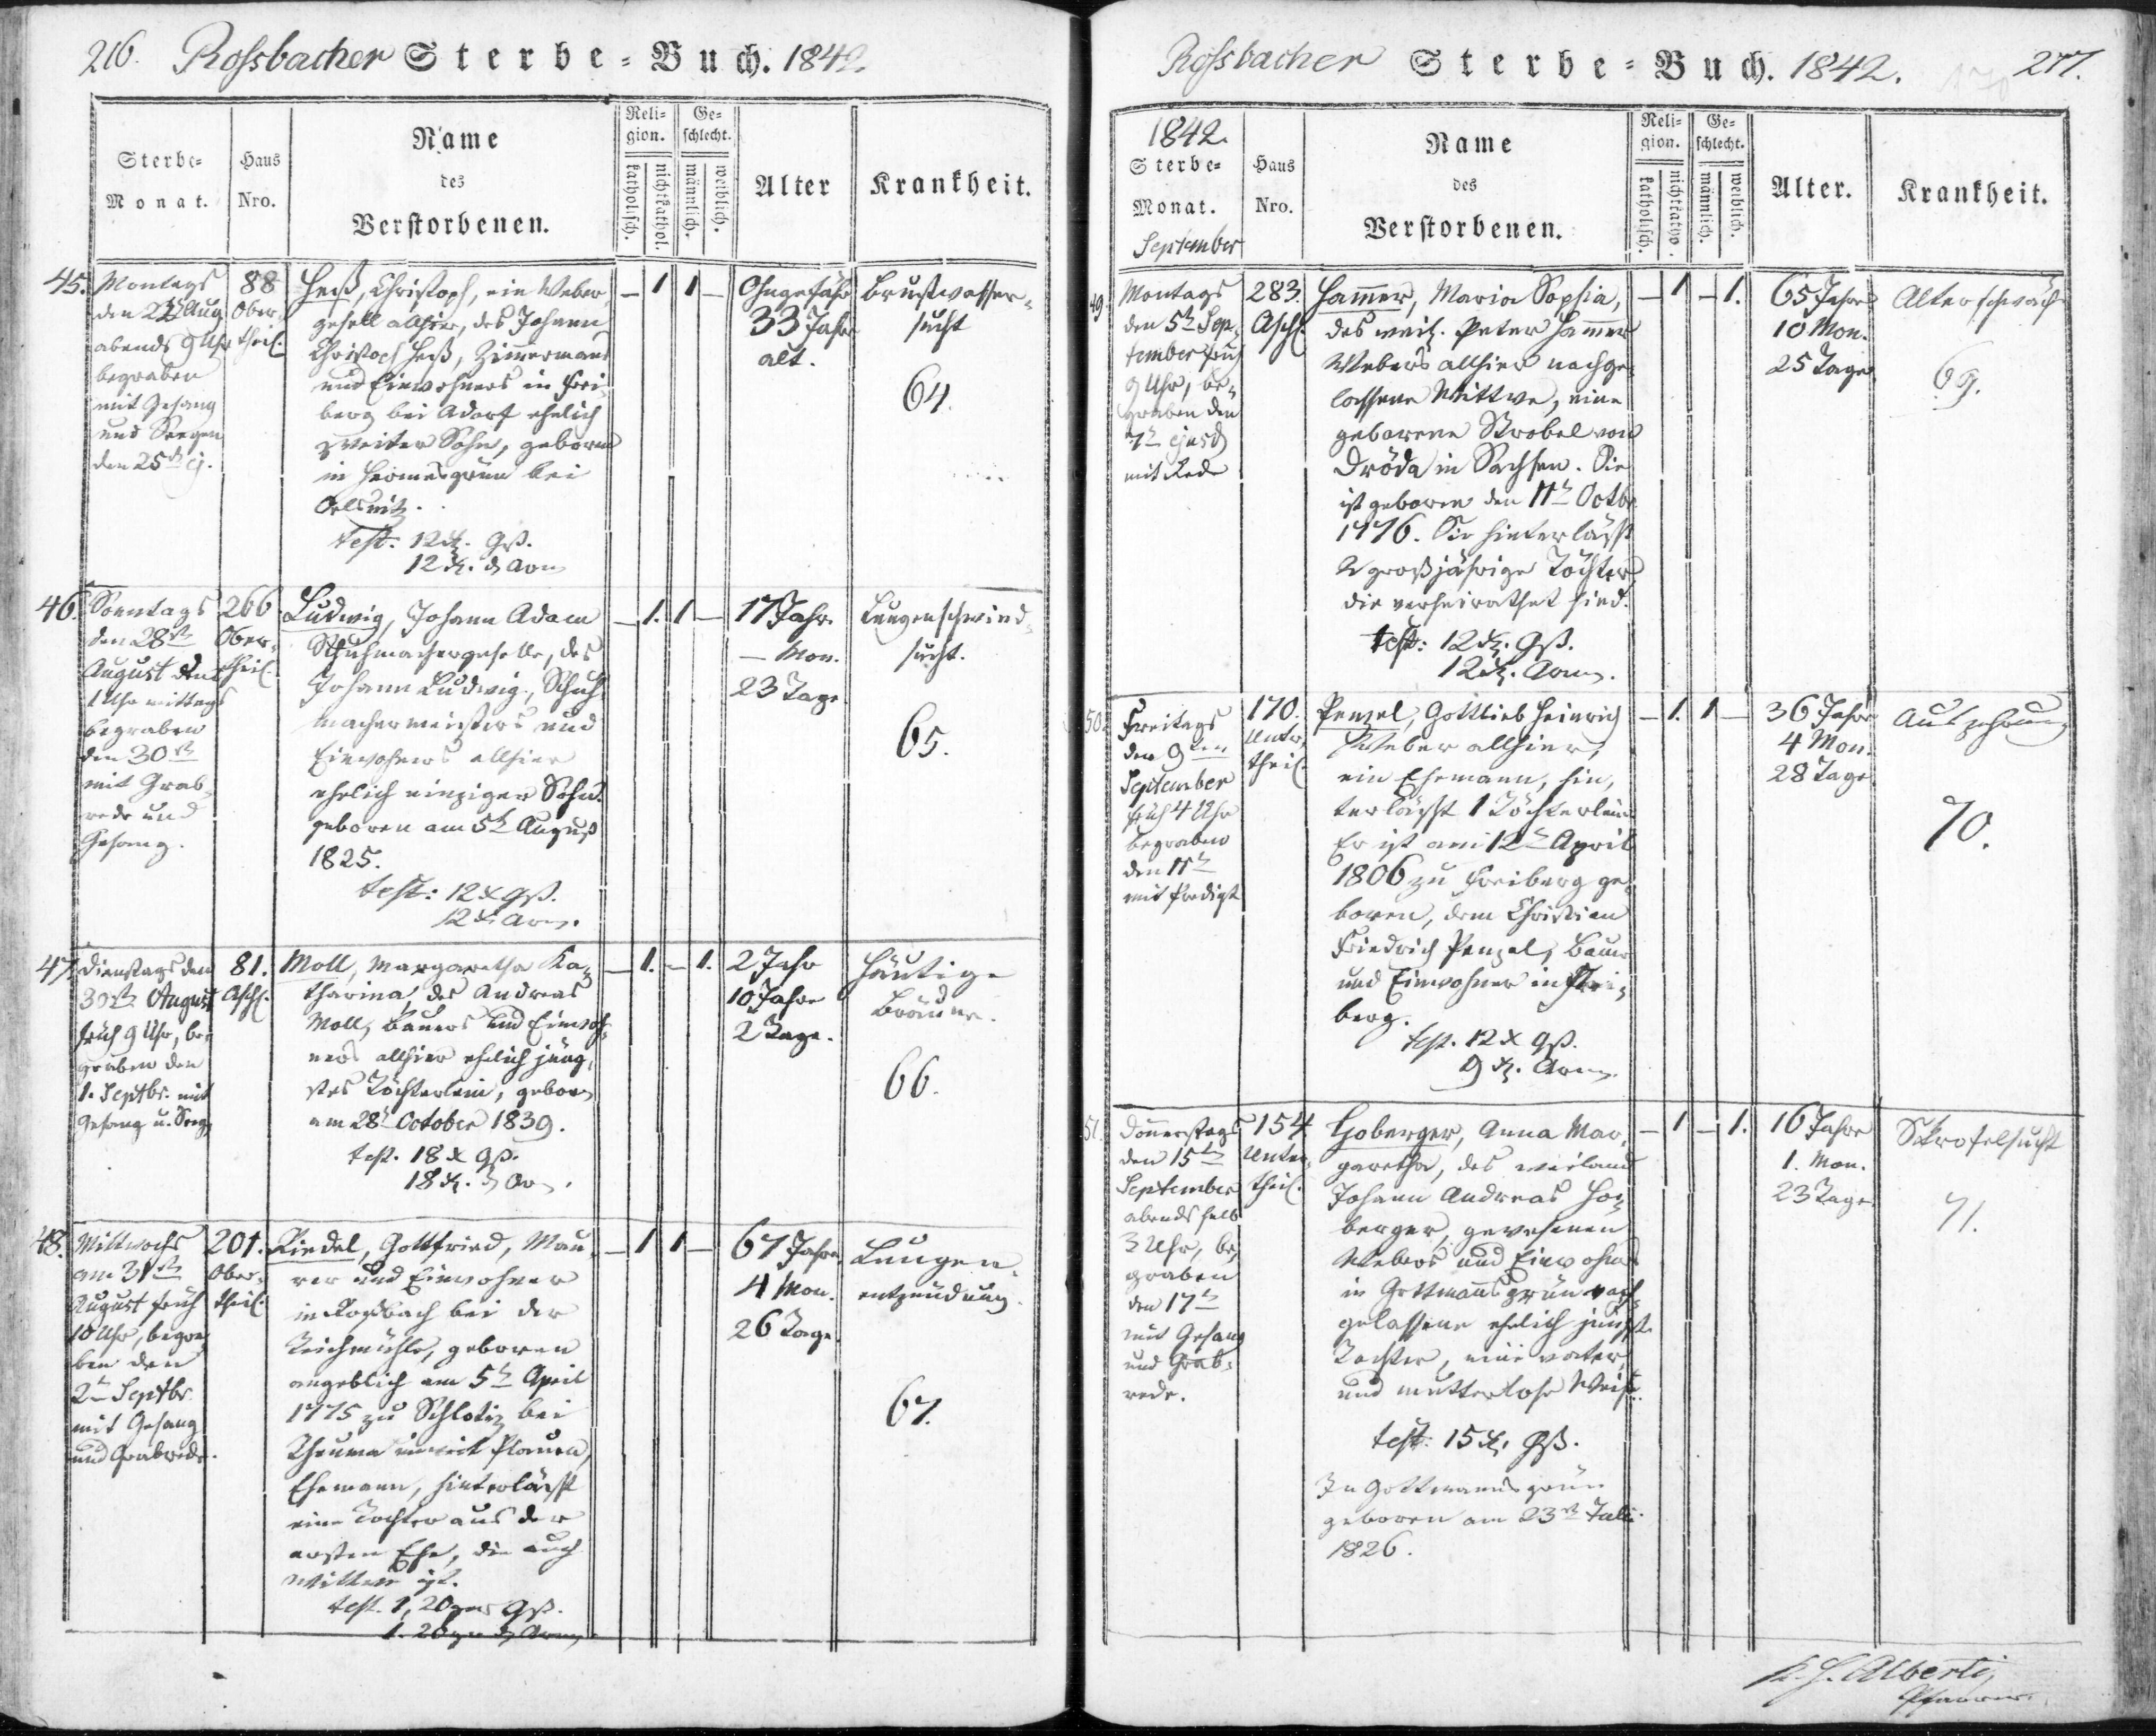 216. Rossbacher Sterbe=Buch. 1842.
Sterbe=
Monat.
Haus
Nro.
Name
des
Verstorbenen.
Reli=
gion.
katholisch.
nichtkathol.
Ge=
schlecht.
männlich.
weiblich.
Alter
Krankheit.
45.
Montags
den 22t Aug
abends 9 Uhr
begraben
mit Gesang
und Seegen
den 25t ej.
88
Ober-
theil.
Heß, Christoph, ein Weber
gesell allhier, des Johann
Christoph Heß, Zimermans
und Einwohners in Frei-
berg bei Adorf ehelich
zweiter Sohn, geboren
in Hermesgrün bei
Oelsnitz.
test: 12 x. Gß.
12 x. d Arm
– 1 1 –
Ohngefähr
33 Jahr
alt.
Brustwasser-
sucht
64.
46.
Sonntags
den 28st
August
1 Uhr mittags
begraben
den 30st
mit Grab-
rede und
Gesang.
266
Ober-
theil.
Ludwig, Johann Adam
Schuhmachergeselle, des
Johann Ludwig, Schuh-
machermeisters und
Einwohners allhier
ehelich einziger Sohn.
geboren am 5t August
1825.
test: 12 x Gß.
12 x Arm.
– 1. 1 –
17 Jahr
– Mon.
23 Tage
Lungenschwind-
sucht.
65.
47.
Dienstags den
30st August
früh 9 Uhr, be-
graben den
1. Septbr. mit
Gesang u. Seeg.
81.
Asch.
Moll, Margaretha Ka-
tharina, des Andreas
Moll, Bauers und Einwoh-
ners allhier ehelich jüng-
stes Töchterlein, geboren
am 28t October 1839.
test. 18 x Gß.
18 x. d Arm.
– 1. – 1.
2 Jahr
10 Jahre
2 Tage.
Häutige
Bräune.
66.
48.
Mittwochs
am 31st
August früh
10 Uhr, begra-
ben den
2t Septbr.
mit Gesang
und Grabrede.
201.
Ober-
theil.
Riedel, Gottfried, Mau-
rer und Einwohner
in Rossbach bei der
Teichmühle, geboren
angeblich am 5t April
1775 zu Schlotiz bei
Theuma unweit Plauen,
Ehemann, hinterläßt
eine Tochter aus der
ersten Ehe, die auch
Wittwe ist.
test. 1, 20ger Gß.
1. 20ger d Arm
– 1 1 –
67 Jahre
4 Mon.
26 Tage.
Lungen-
entzündung.
67.
Rossbacher Sterbe=Buch. 1842. 217.
1842.
Sterbe=
Monat.
September
Haus
Nro.
Name
des
Verstorbenen.
Reli=
gion.
katholisch.
nichtkatho.
Ge=
schlecht.
männlich.
weiblich.
Alter.
Krankheit.
49.
Montags
den 5t Sep-
tember früh
9 Uhr, be-
graben den
7t ejusd
mit Rede
283.
Asch.
Hammer, Maria Sophia,
des weil. Peter Hammer
Webers allhier nachge-
lassene Wittwe, eine
geborene Strobel von
Dröda in Sachsen. Sie
ist geboren den 11t Octbr
1776. Sie hinterläßt
2 großjährige Töchter,
die verheirathet sind.
test: 12 x. Gß.
12 x. Arm.
– 1 – 1.
65 Jahre
10 Mon.
25 Tage
Altersschwäch
69.
50.
Freitags
den 9ten
September
früh 4 Uhr
begraben
den 11t
mit Predigt
170.
Unter-
theil.
Penzel, Gottlieb Heinrich
Weber allhier,
ein Ehemann, hin-
terläßt 1 Töchterlein
Er ist am 12t April
1806 zu Freiberg ge-
boren, dem Christian
Friedrich Penzel, Bauer
und Einwohner in Frei-
berg.
test. 12 x Gß.
9 x. Arm.
– 1. 1 –
36 Jahr
4 Mon.
28 Tage
Auszehrung
70.
51.
Donnerstags
den 15t
September
abends halb
3 Uhr, be-
graben
den 17t
mit Gesang
und Grab-
rede.
154
Unter-
theil.
Hoberger, Anna Mar-
garetha, des weiland
Johann Andreas Ho-
berger, gewesenen
Webers und Einwohners
in Gottmannsgrün nach-
gelassene ehelich jüngste
Tochter, eine vater-
und mutterlose Waise.
test: 15 x. Gß.
In Gottmannsgrün
geboren am 23st Juli
1826.
– 1 – 1.
16 Jahre
1. Mon.
23 Tage.
Skrofelsucht
71.
Alberti,
Pfarrer.